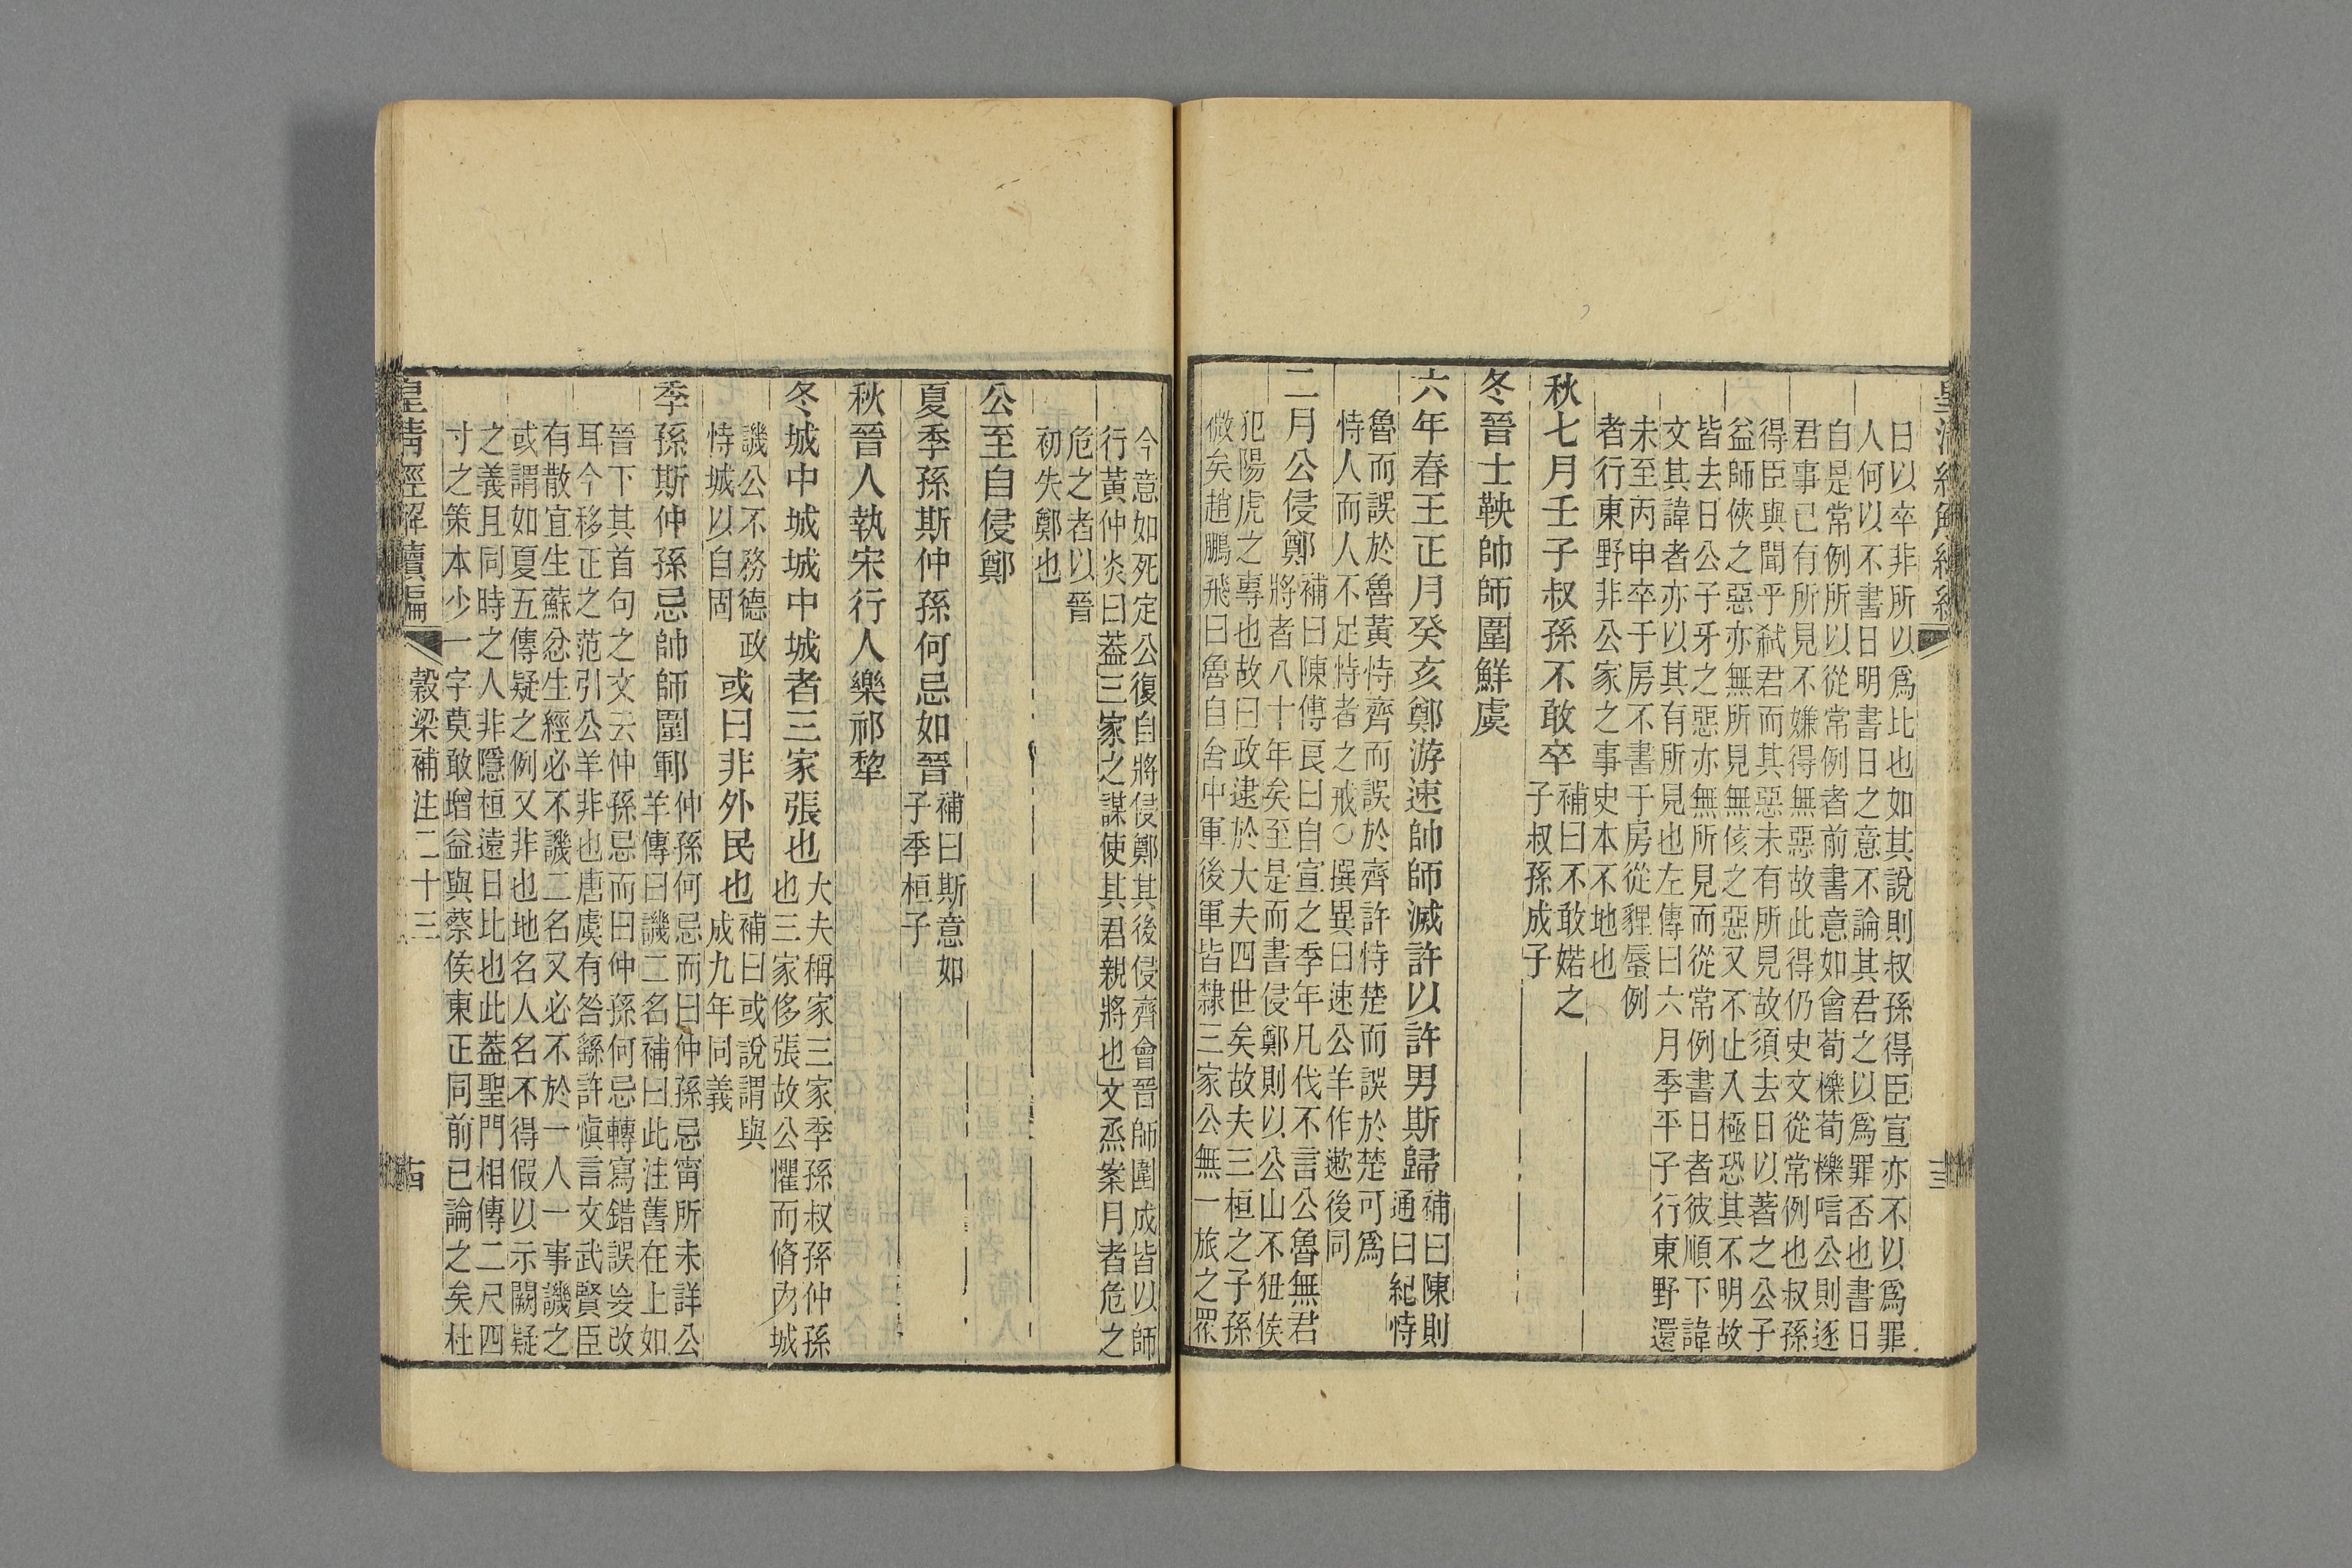 日以卒非所以爲比也如其說則叔孫得臣宣亦不以爲罪
人何以不書日明書日之意不論其君之以爲罪否也書日
自是常例所以從常例者前書意如會荀櫟荀櫟唁公則逐
君事已有所見不嫌得無惡故此得仍史文從常例也叔孫
得臣與聞乎弑君而其惡未有所見故須去日以著之公子
益師俠之惡亦無所見無侅之惡又不止入極恐其不明故
皆去日公子牙之惡亦無所見而從常例書日者彼順下諱
文其諱者亦以其有所見也左傳曰六月季平子行東野還
未至丙申卒于房不書于房從貍蜃例
者行東野非公家之事史本不地也
秋七月壬子叔孫不敢卒補曰不敢婼之
子叔孫成子
冬晉士鞅帥師圍鮮虞
六年春王正月癸亥鄭游速帥師滅許以許男斯歸補曰陳則
通曰紀恃
魯而誤於魯黃恃齊而誤於齊許恃楚而誤於楚可爲
恃人而人不足恃者之戒○撰異曰速公羊作遬後同
二月公侵鄭補曰陳傅良曰自宣之季年凡伐不言公魯無君
將者八十年矣至是而書侵鄭則以公山不狃侯
犯陽虎之專也故曰政逮於大夫四世矣故夫三桓之子孫
微矣趙鵬飛曰魯自舍中軍後軍皆隸三家公無一旅之眾
今意如死定公復自將侵鄭其後侵齊會晉師圍成皆以師
行黃仲炎曰葢三家之謀使其君親將也文烝案月者危之
危之者以晉
初失鄭也
公至自侵鄭
夏季孫斯仲孫何忌如晉補曰斯意如
子季桓子
秋晉人執宋行人樂祁犂
冬城中城城中城者三家張也大夫稱家三家季孫叔孫仲孫
也三家侈張故公懼而脩內城
譏公不務德政
恃城以自固
或曰非外民也補曰或說謂與
成九年同義
季孫斯仲孫忌帥師圍鄆仲孫何忌而曰仲孫忌甯所未詳公
羊傳曰譏二名補曰此注舊在上如
晉下其首句之文云仲孫忌而曰仲孫何忌轉寫錯誤妄改
耳今移正之范引公羊非也唐虞有咎繇許愼言文武賢臣
有散宜生蘇忿生經必不譏二名又必不於一人一事譏之
或謂如夏五傳疑之例又非也地名人名不得假以示闕疑
之義且同時之人非隱桓遠日比也此葢聖門相傳二尺四
寸之策本少一字莫敢增益與蔡侯東正同前已論之矣杜
皇淸經解續編
穀梁補注二十三
古